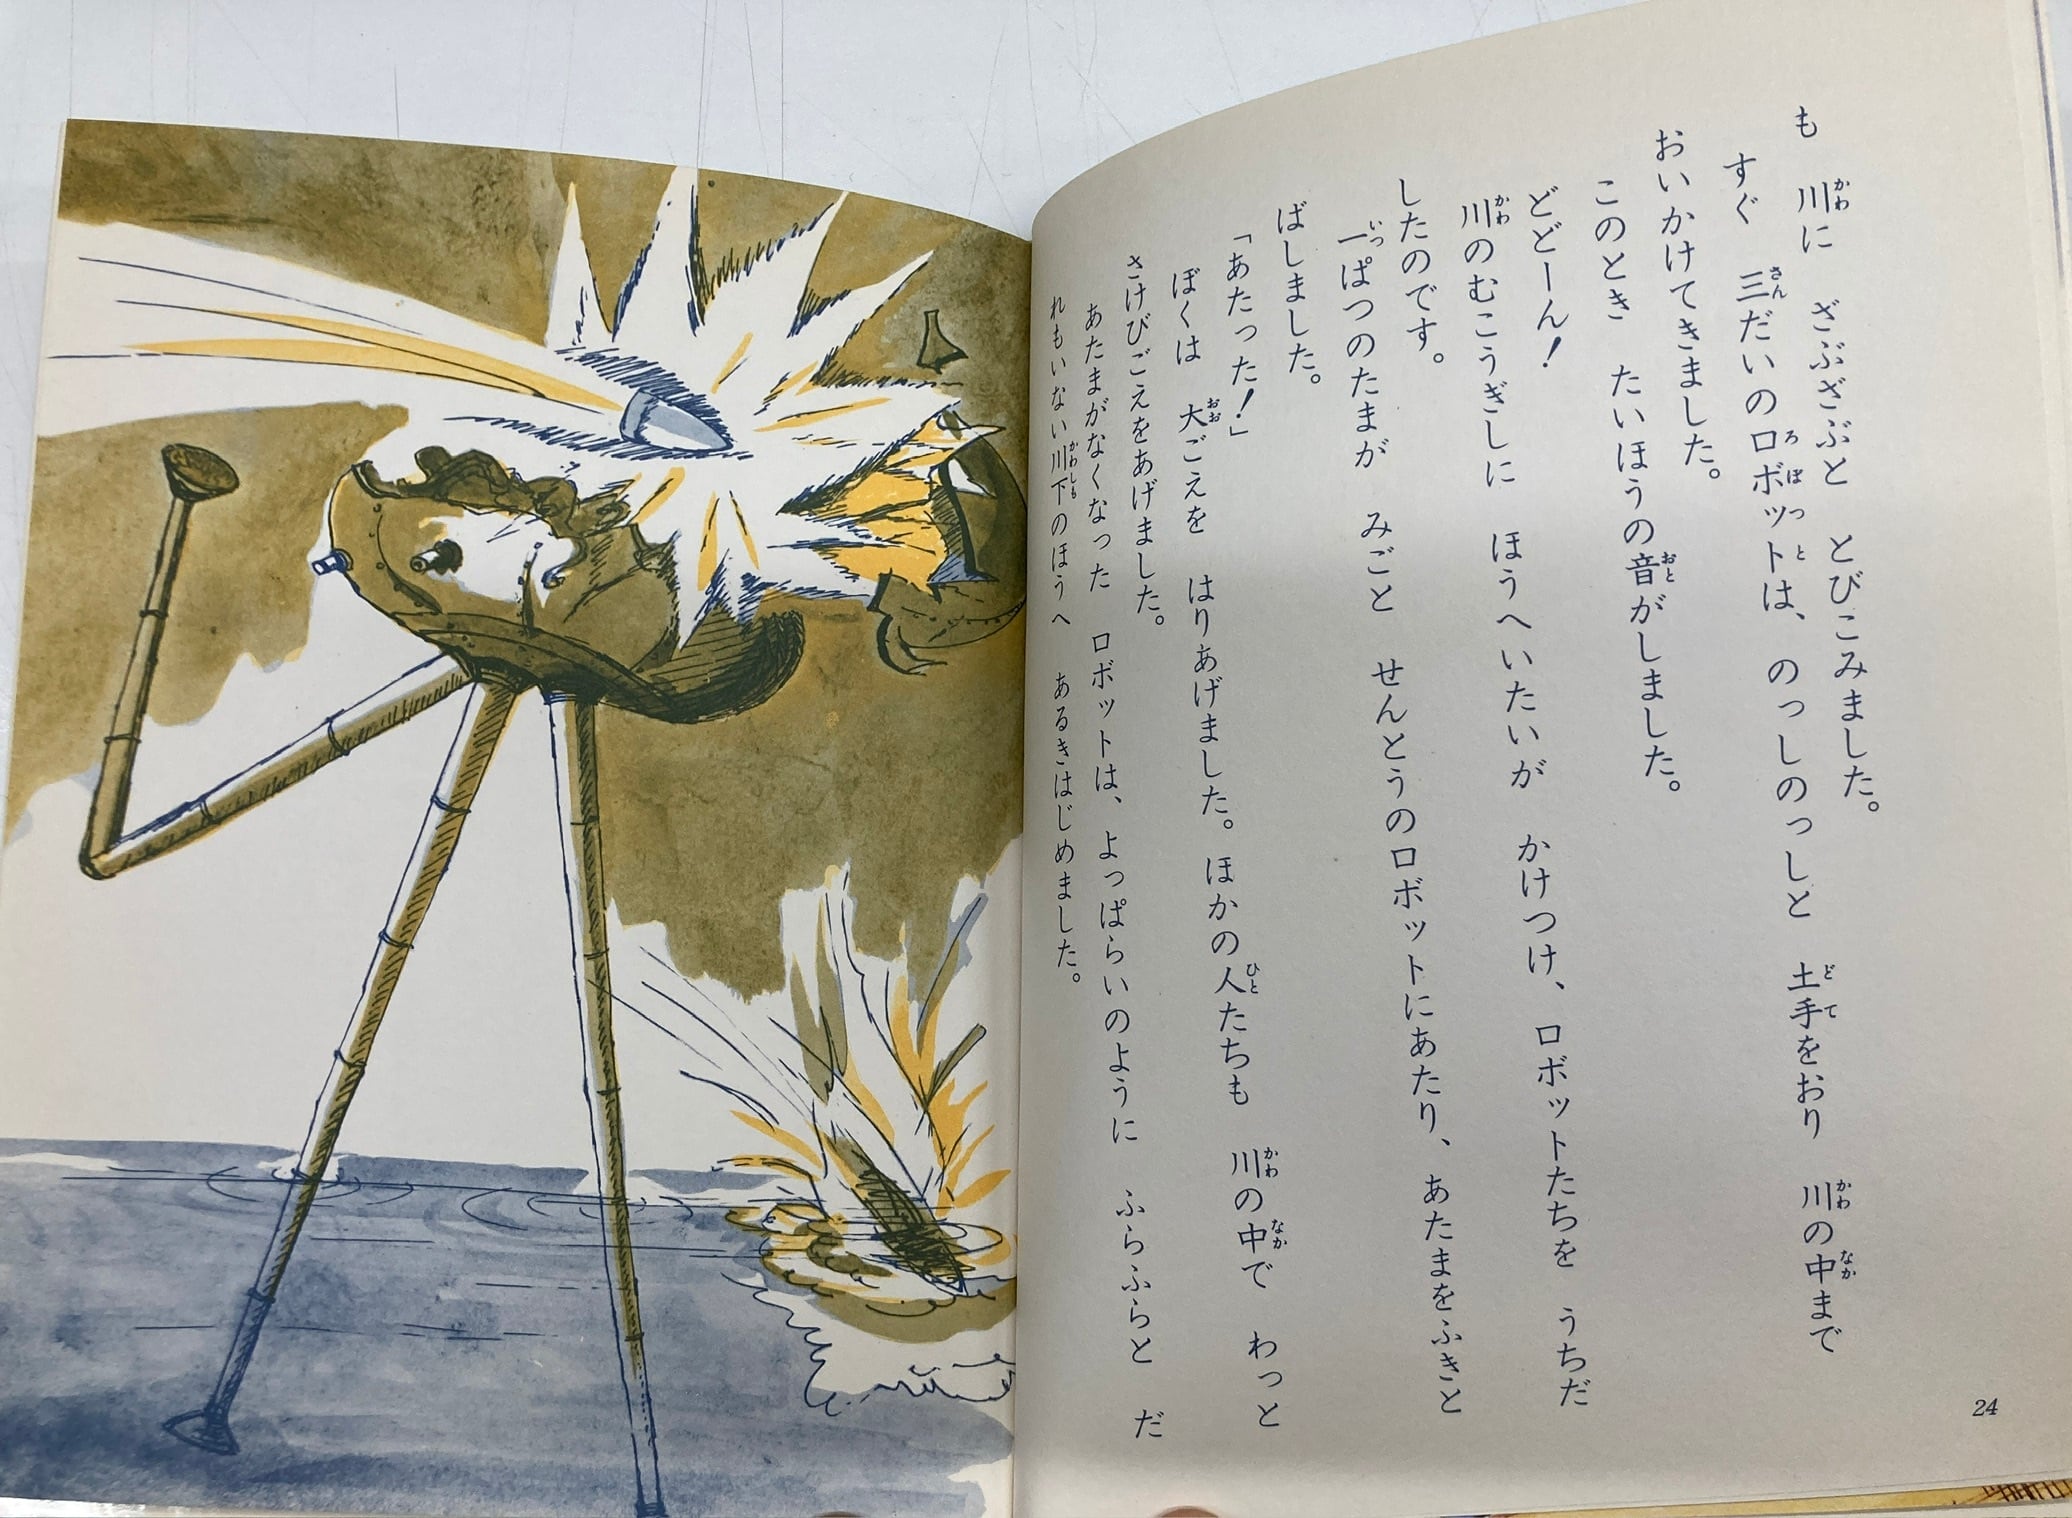 も　川に　ざぶざぶと　とびこみました。
すぐ　三だいのロボットは、のっしのっしと　土手をおり　川の中まで
おいかけてきました。
このとき　たいほうの音がしました。
どどーん！
川のむこうぎしに　ほうへいたいが　かけつけ、ロボットたちを　うちだ
したのです。
一ぱつのたまが　みごと　せんとうのロボットにあたり、あたまをふきと
ばしました。
「あたった！」
ぼくは　大ごえを　はりあげました。ほかの人たちも　川の中で　わっと
さけびごえをあげました。
あたまがなくなった　ロボットは、よっぱらいのように　ふらふらと　だ
れもいない川下のほうへ　あるきはじめました。
24